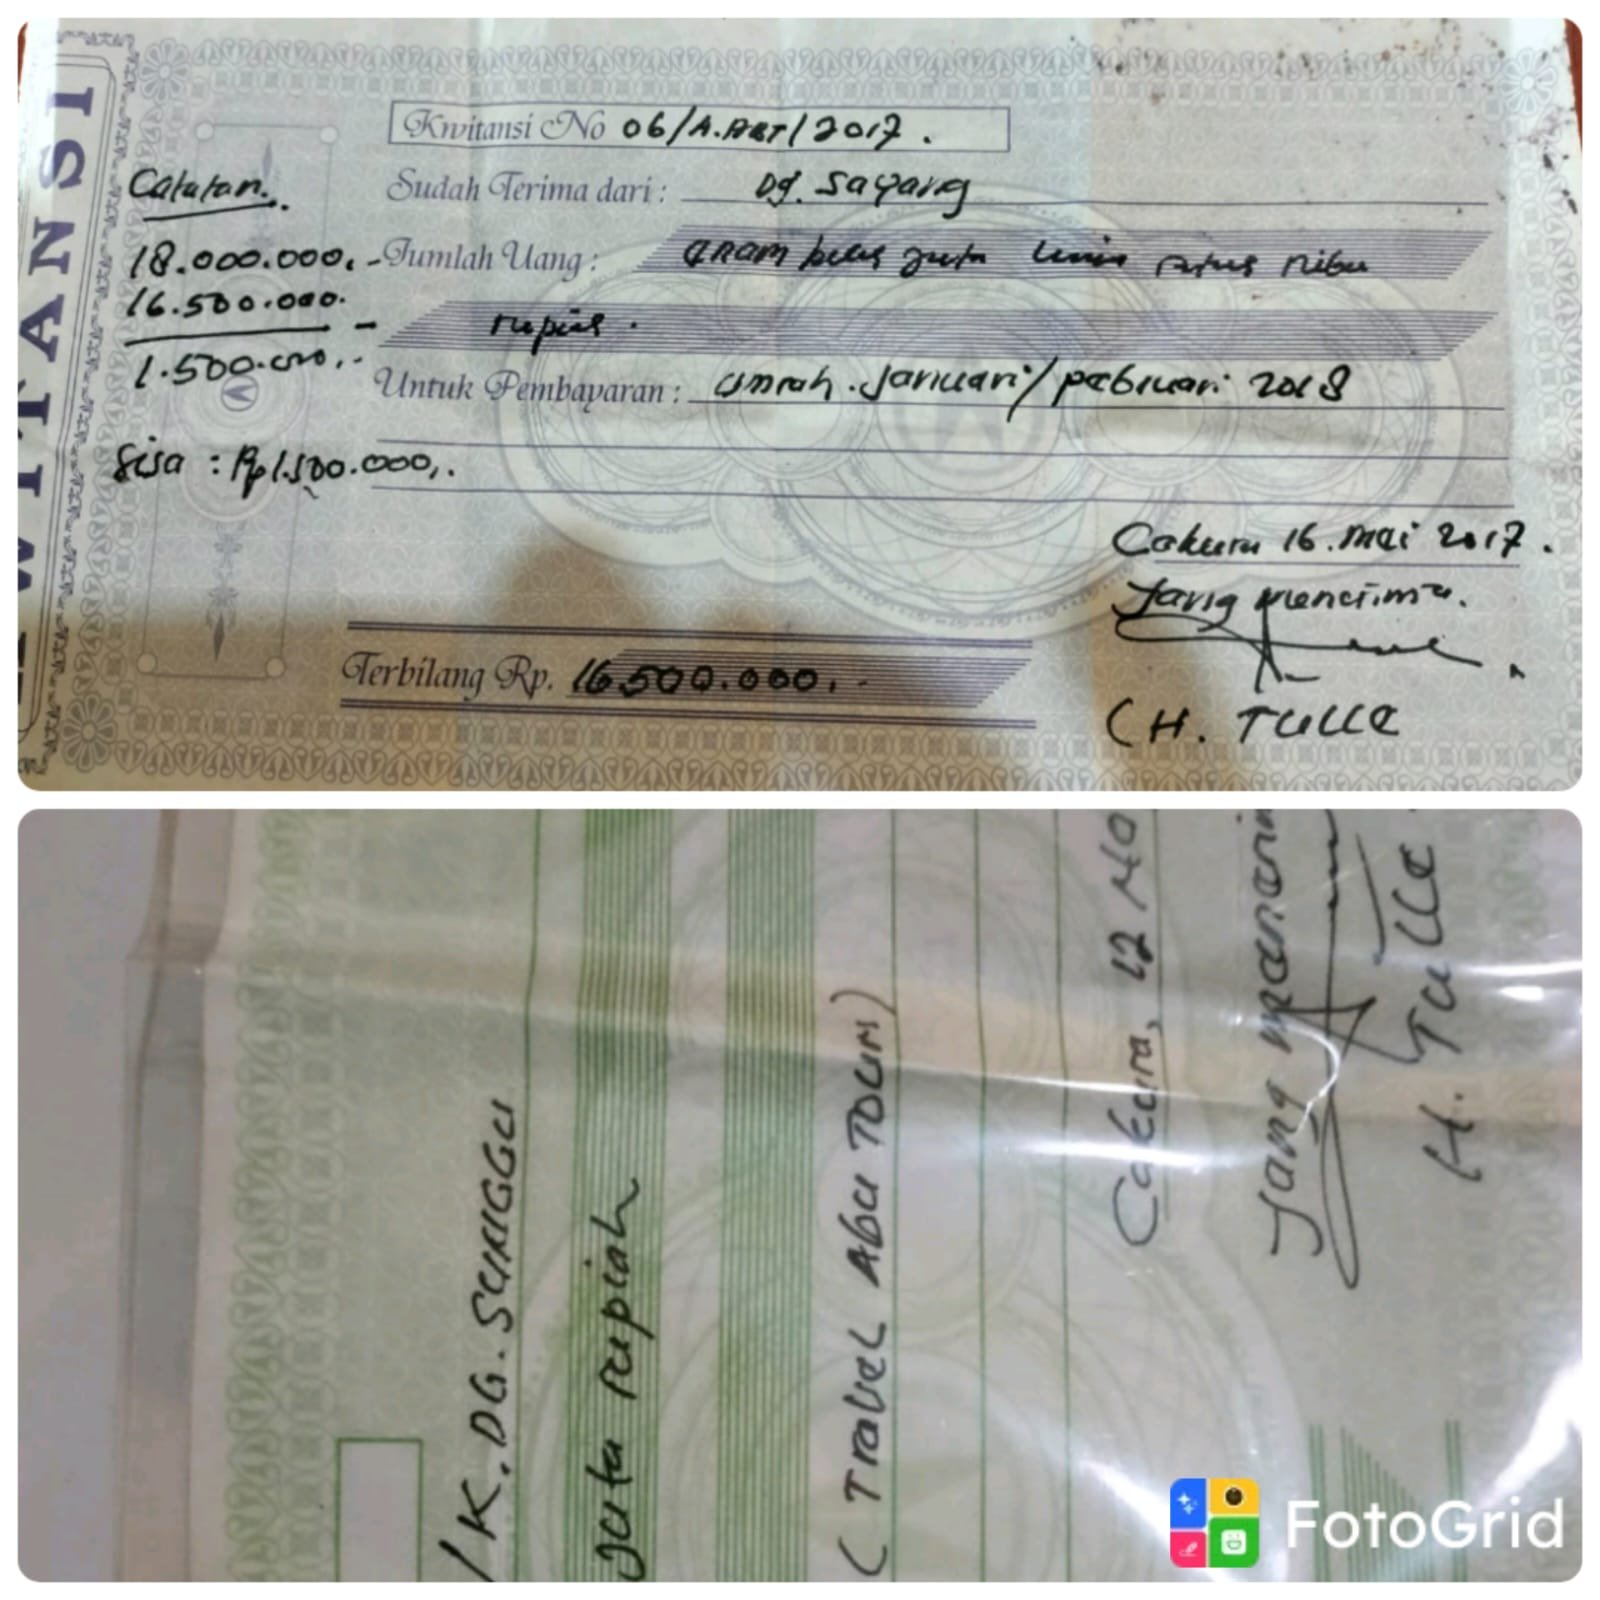 KWITANSI
Kwitansi No 06/A.ABT/2017.
Catatan.
18.000.000,-
16.500.000.
1.500.000,.-
Sisa : Rp1.500.000,.
Sudah Terima dari : Dg. Sayang
Jumlah Uang : Enam belas juta lima ratus ribu
rupiah.
Untuk Pembayaran : Umrah. Januari/pebruari 2018
Cakura 16. Mei 2017.
Yang menerima.
Terbilang Rp. 16.500.000,.-
(H. TULLE
/K. DG. SURIGGU
juta rupiah
(Travel Abu Tour)
Cakura, 12
Yang
H. Tulle
FotoGrid